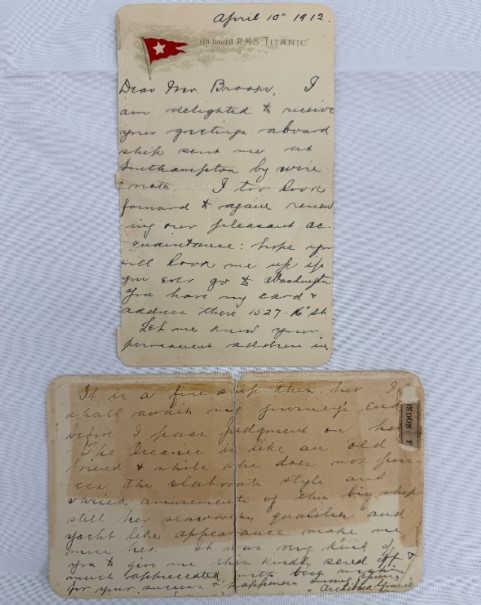 April 10th 1912.
On board R.M.S. TITANIC
Dear Mr. I
am delighted to receive
your greetings aboard
ship sent me at
Southampton by wire
& note. I too look
forward to again renew
ing our pleasant ac-
quaintance: hope you
will look me up if
you ever go to Washington
You have my card &
address there 1527-16 St.
Let me know your
permanent address in
It is a fine ship but I
shall await my journey's end
before I pass judgment on her
The Oceanic is like an old
friend & while she does not poss-
ess the elaborate style and
varied amusements of this big ship
still her seaworthy qualities and
yacht like appearance make me
miss her. It was very kind of
you to give me this kindly send off &
much appreciated with best wishes
for your success &
Archibald Gracie